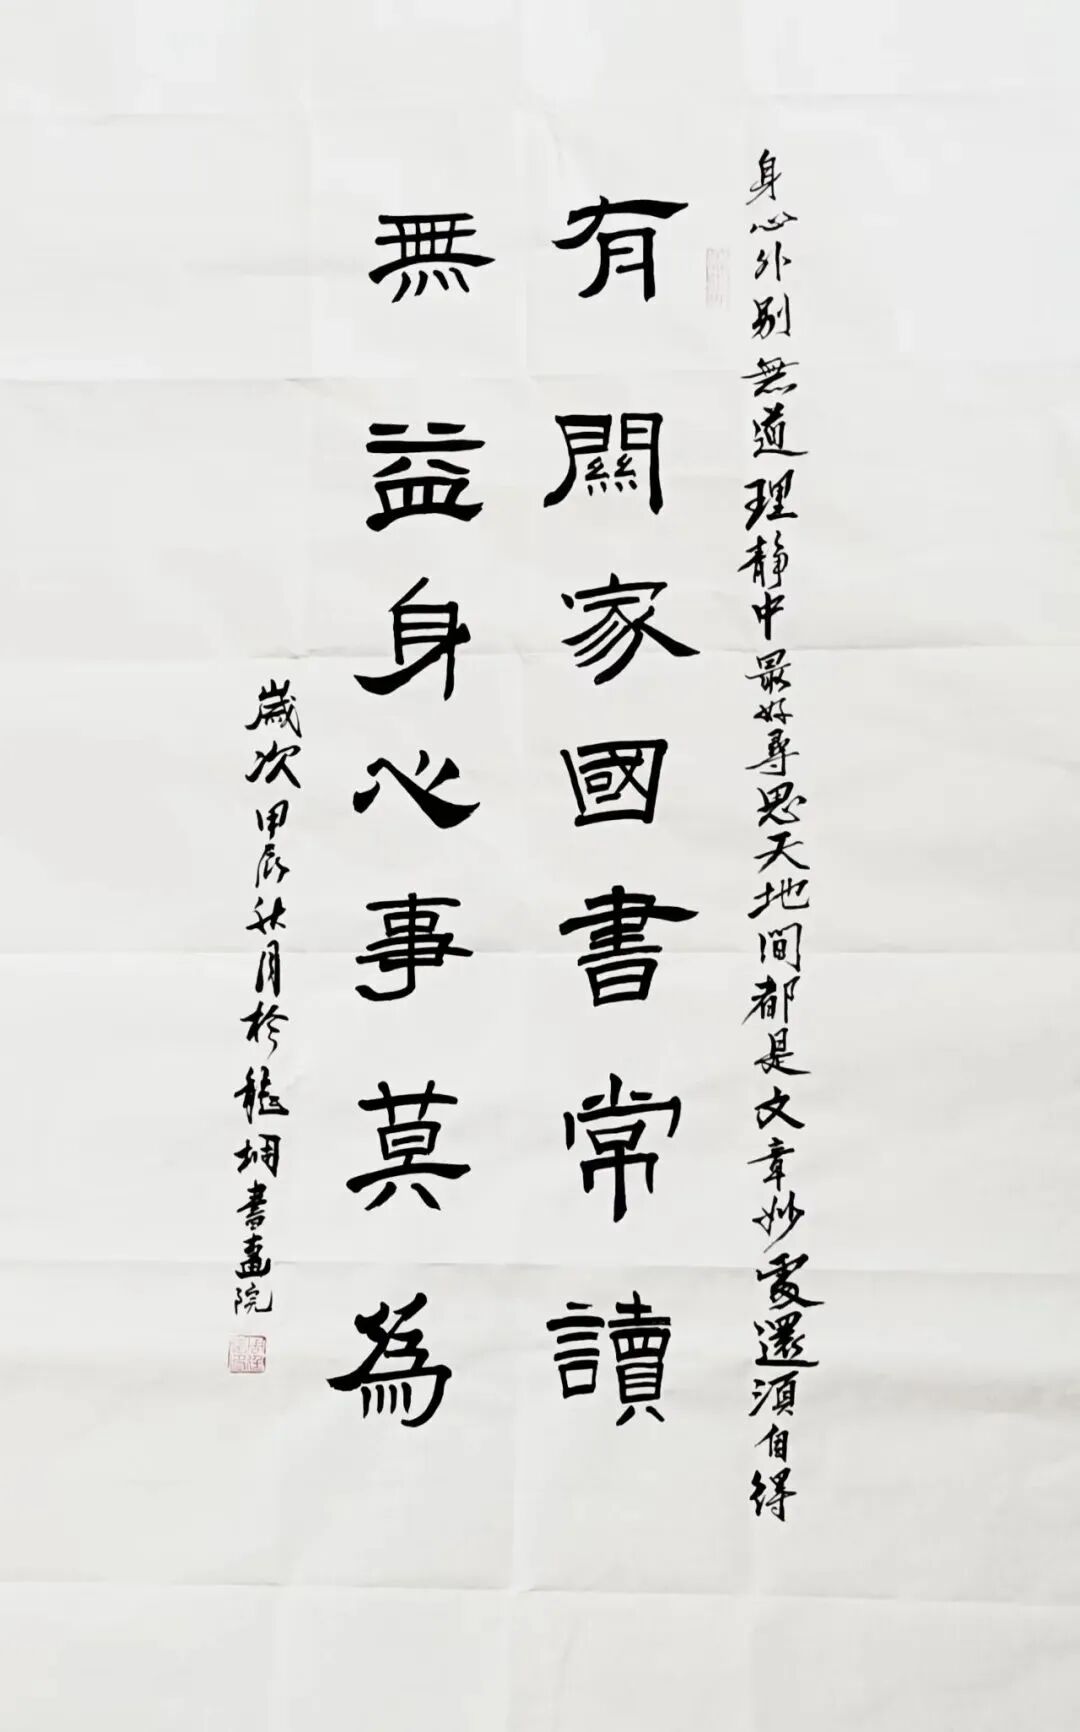 身心外别無道理静中最好尋思天地間都是文章妙處還須自得
有關家國書常讀
無益身心事莫為
歲次甲辰秋月於龍堈書畫院